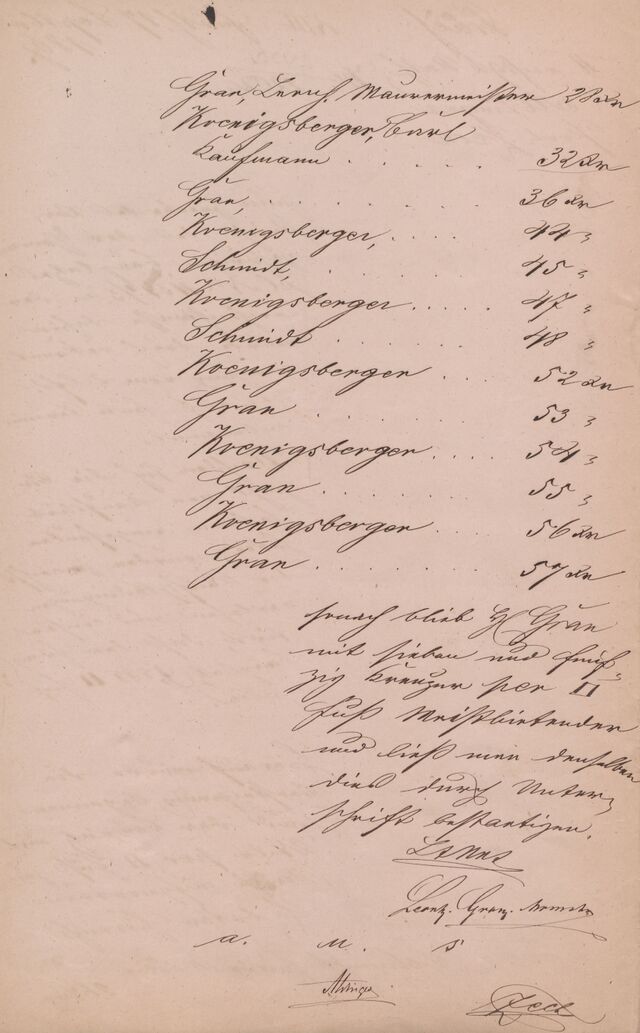 Gran, Maurermeister 28 xr
Koenigsberger, Carl
Kaufmann . . . . . 32 xr
Gran, . . . . . . 36 xr
Koenigsberger, . . . . 44 „
Schmidt, . . . . . 45 „
Koenigsberger . . . . . 47 „
Schmidt . . . . . 48 „
Koenigsberger . . . . 52 xr
Gran . . . . . . 53 „
Koenigsberger . . . . 54 „
Gran . . . . . . 55 „
Koenigsberger . . . . 56 xr
Gran . . . . . . 57 xr
sonach blieb H Gran
mit sieben und fünf-
zig Kreuzer per □
Fuß Meistbietender
und ließ man denselben
dies durch Unter-
schrift bestaetigen.
a. u. s
Zech